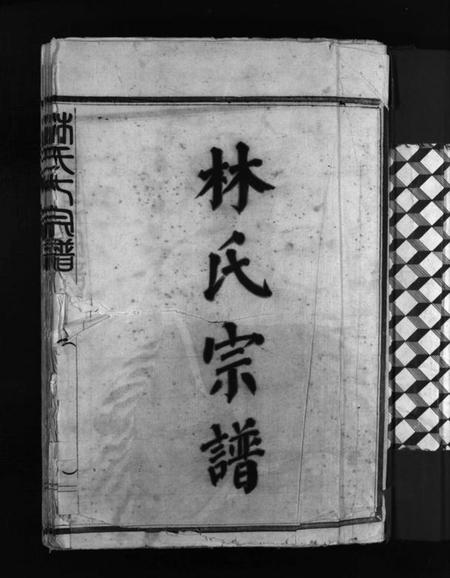 林氏宗譜
林氏宗譜